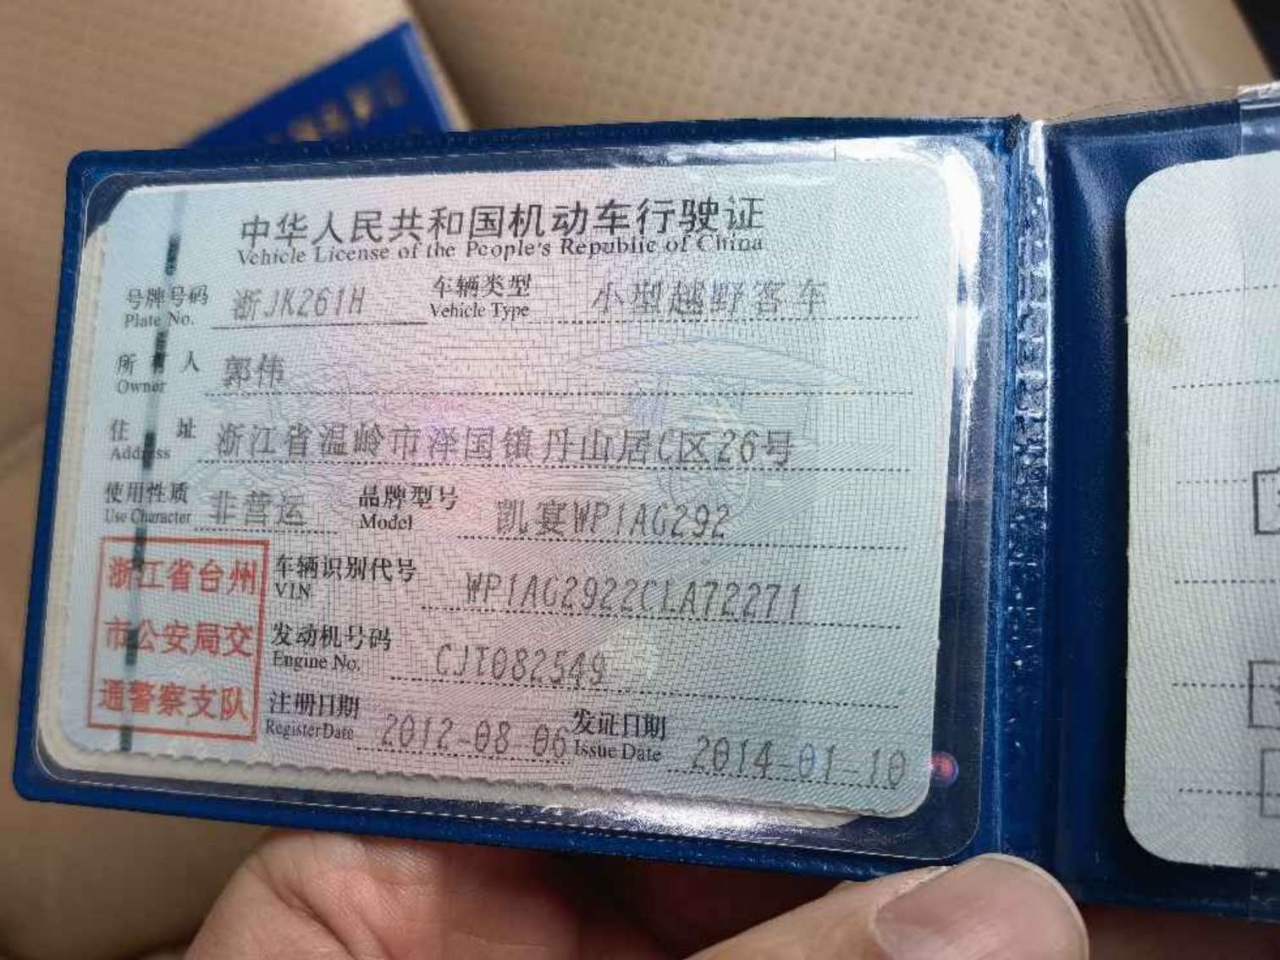 中华人民共和国机动车行驶证
Vehicle License of the People's Republic of China
号牌号码 浙JK261H 车辆类型 小型越野客车
Plate No. Vehicle Type
所有人 郭伟
Owner
住址 浙江省温岭市泽国镇丹山居C区26号
Address
使用性质 非营运 品牌型号 凯宴WP1AG292
Use Character Model
浙江省台州
市公安局交
通警察支队
车辆识别代号 WP1AG2922CLA72271
VIN
发动机号码 CJT082549
Engine No.
注册日期 2012-08-06 发证日期 2014-01-10
Register Date Issue Date